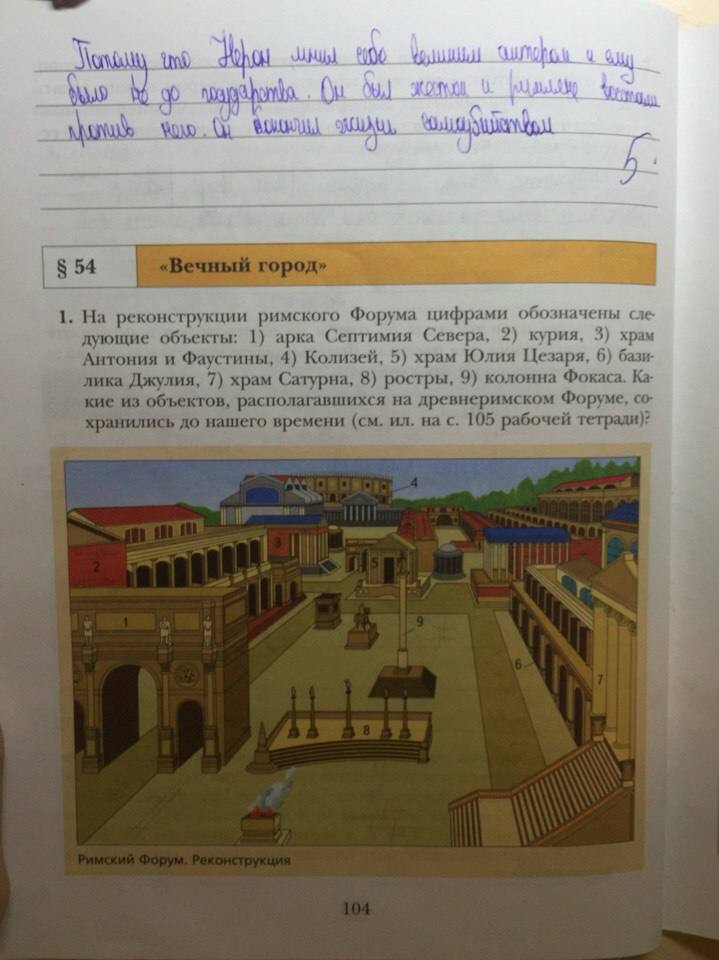 Потому что Нерон мнил себя великим актером и ему
было не до государства. Он был жесток и римляне восстали
против него. Он покончил жизнь самоубийством
5.
§ 54
«Вечный город»
1. На реконструкции римского Форума цифрами обозначены сле-
дующие объекты: 1) арка Септимия Севера, 2) курия, 3) храм
Антония и Фаустины, 4) Колизей, 5) храм Юлия Цезаря, 6) бази-
лика Джулия, 7) храм Сатурна, 8) ростры, 9) колонна Фокаса. Ка-
кие из объектов, располагавшихся на древнеримском Форуме, со-
хранились до нашего времени (см. ил. на с. 105 рабочей тетради)?
4
3
2
5
1
9
6
7
8
Римский Форум. Реконструкция
104